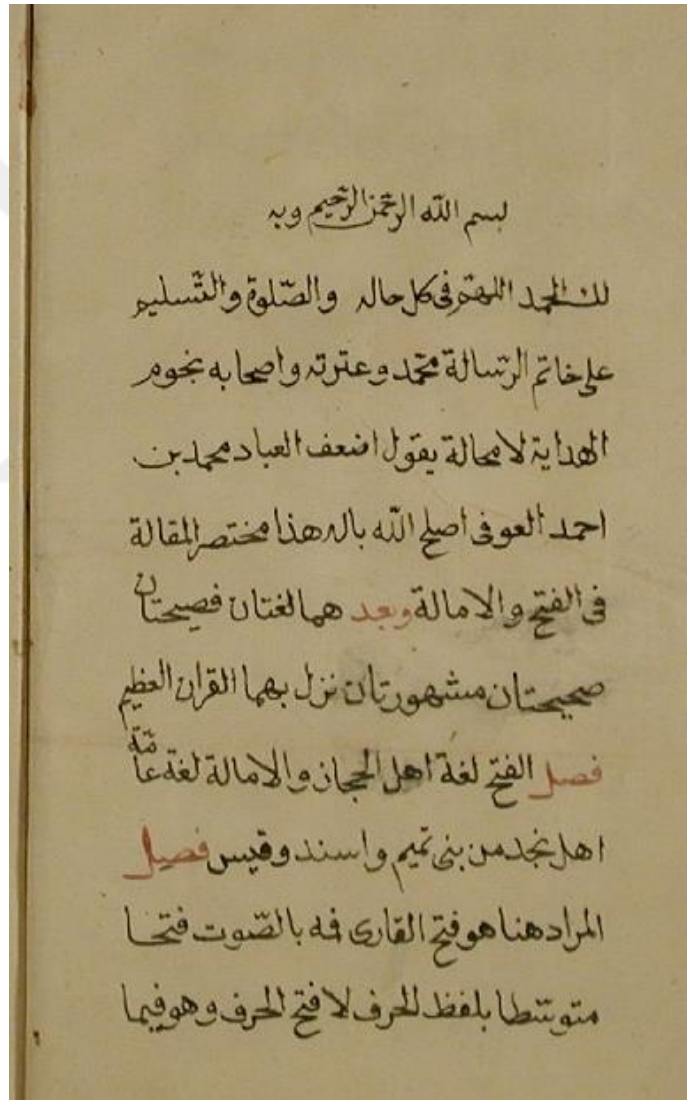 بسم الله الرّحمن الرّحيم وبه
لك الحمد اللهمّ فى كل حاله والصّلوة والتّسليم
على خاتم الرّسالة محمّد وعترته واصحابه نجوم
الهداية لا محالة يقول اضعف العباد محمد بن
احمد العوفى اصلح الله باله هذا مختصر المقالة
فى الفتح والامالة وبعد هما لغتان فصيحتان
صحيحتان مشهورتان نزل بهما القران العظيم
فصل الفتح لغة اهل الحجاز والامالة لغة عامّة
اهل نجد من بنى تميم واسند وقيس فصل
المراد هنا هو فتح القارى فه بالصّوت فتحا
متوسّطا بلفظ الحرف لا فتح الحرف وهو فيما